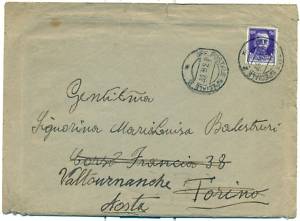 Gentilma
Signorina Marialuisa Balestreri
Corso Francia 38
Valtournanche Torino
Aosta